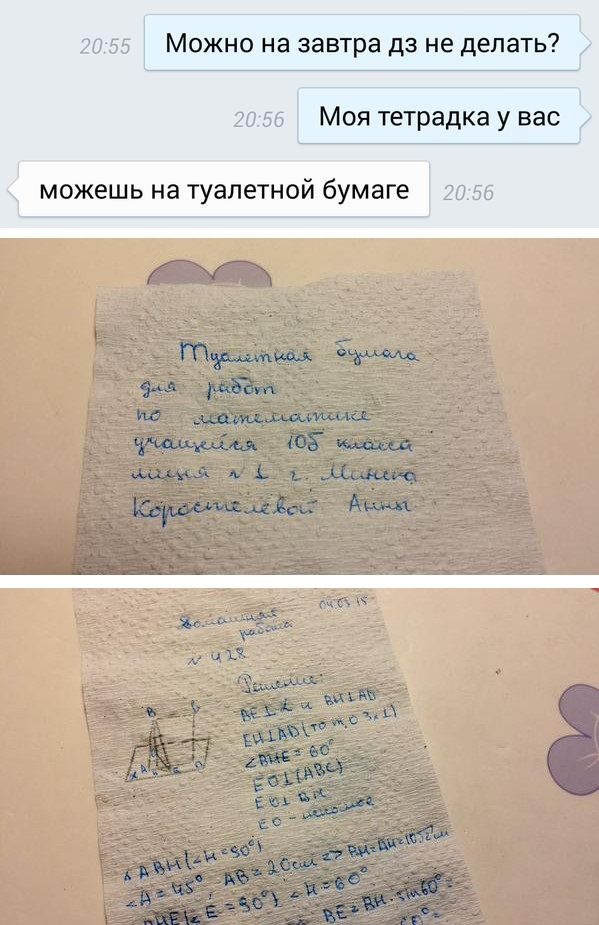 20:55 Можно на завтра дз не делать?
20:56 Моя тетрадка у вас
можешь на туалетной бумаге 20:56
Туалетная бумага
для работ
по математике
учащейся 10б класса
лицея №1 г. Минска
Коростелёвой Анны
04.03.15
Домашняя
работа
№ 428
Решение:
BH⊥AD
EH⊥AD
∠BHE = 60°
EO⊥(ABC)
EO⊥BH
EO - искомое
ABH(∠H=90°)
∠A=45°, AB=20см =>
∠H=60°
BE=BH·sin60°=